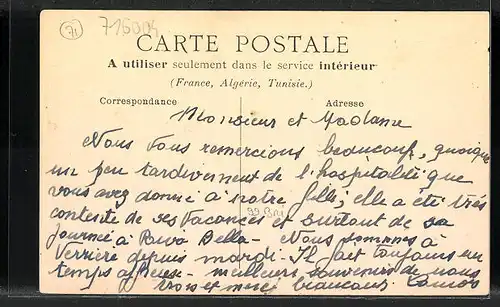 71
715004
CARTE POSTALE
A utiliser seulement dans le service intérieur
(France, Algérie, Tunisie.)
Correspondance Adresse
Monsieur et Madame
Nous Vous remercions beaucoup, quoique
un peu tardivement de l'hospitalité que
vous avez donné à notre fille; elle a été très
contente de ses Vacances et surtout de sa
journée à Bella - Nous sommes à
Verrière depuis mardi - Il fait toujours un
temps affreux - meilleurs souvenirs de nous
trois et merci beaucoup.